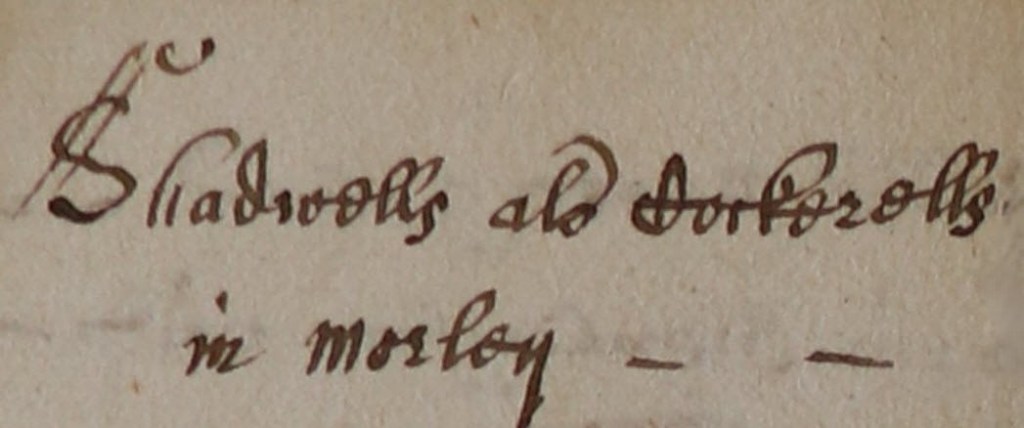 Shadwells als Cockerells
in Morley — —